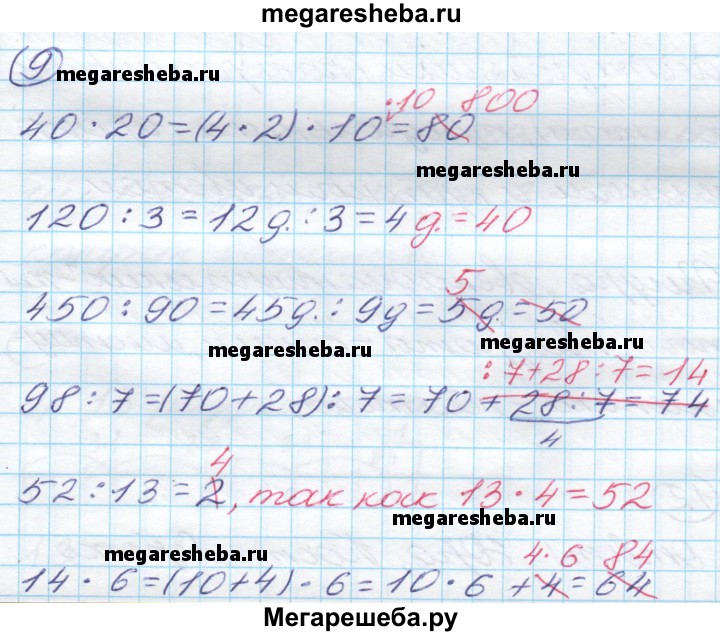 megaresheba.ru
9 megaresheba.ru
·10 800
40·20=(4·2)·10=80
megaresheba.ru
120:3=12д.:3=4д.=40
5
450:90=45д.:9д=5д.=50
megaresheba.ru megaresheba.ru
:7+28:7=14
98:7=(70+28):7=70+28:7=74
4
4
52:13=2, так как 13·4=52
megaresheba.ru
megaresheba.ru 4·6 84
14·6=(10+4)·6=10·6+4=64
Мегарешеба.ру